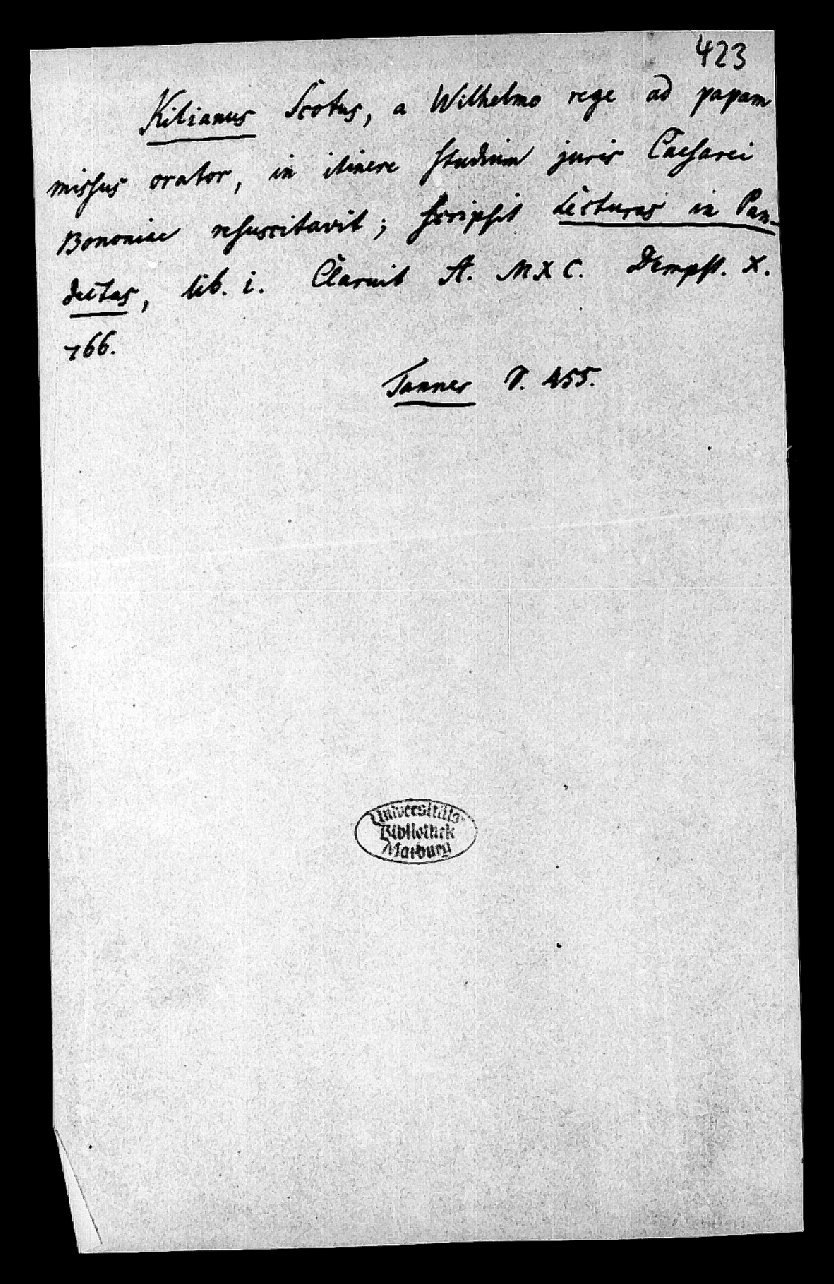 423
Kilianus Scotus, a Wilhelmo rege ad papam
missus orator, in itinere studium juris Caesarei
Bononiae resuscitavit; scripsit Lecturas in Pan-
dectas, lib. i. Claruit A. MXC. Dempst. X.
766.
Tanner p. 455.
Universitäts-
Bibliothek
Marburg